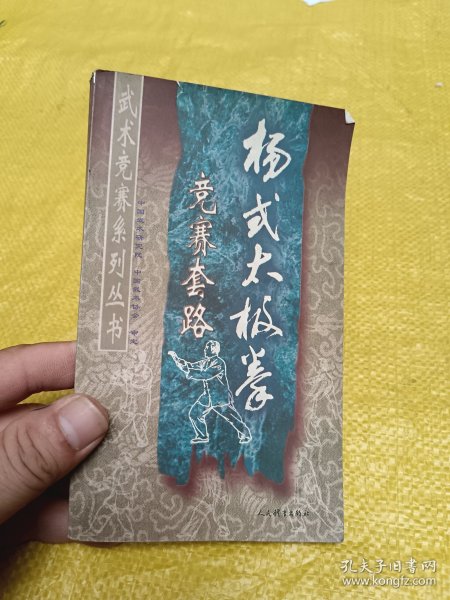 武术竞赛系列丛书
中国武术研究院 中国武术协会 审定
杨式太极拳
竞赛套路
人民体育出版社
孔夫子旧书网
www.kongfz.com